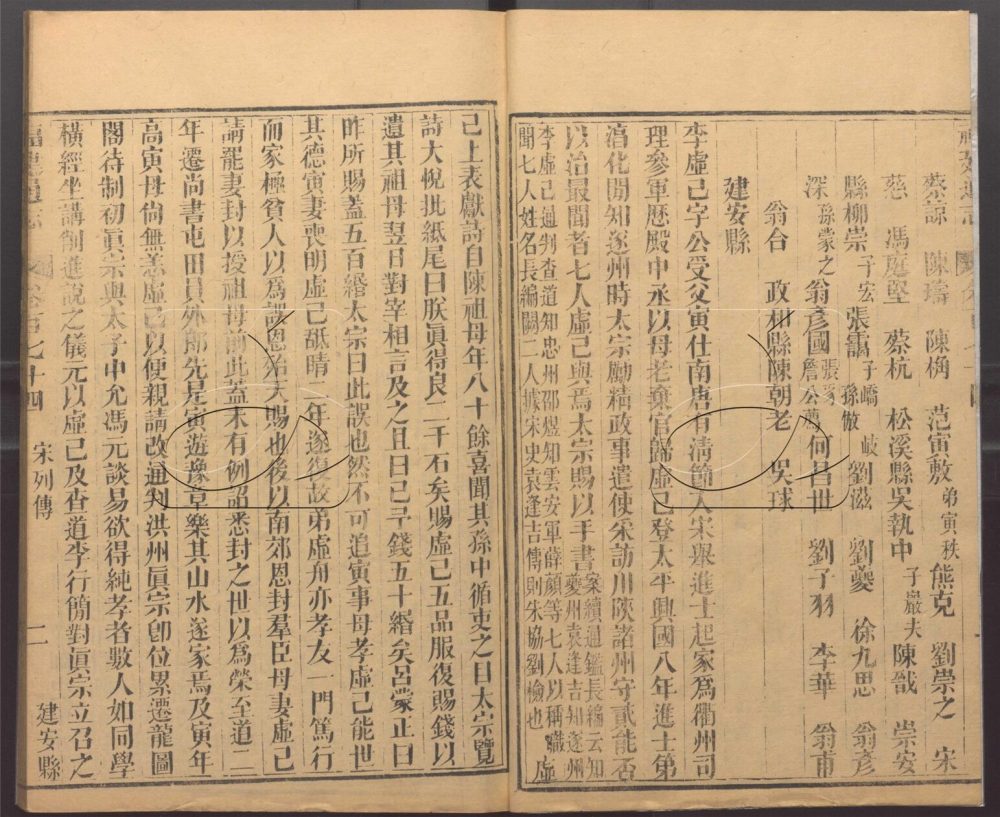 蔡諒 陳璹 陳桷 范寅敷弟寅秩熊克 劉崇之 宋
慈 馮庭堅 蔡杭 松溪縣吳執中子巖夫陳戩 崇安
縣柳崇子宏張翥子嶠孫傚岐劉滋 劉夔 徐九思 翁彥
深孫蒙之翁彥國詹公薦何昌世 劉子羽 李華 翁甫
翁合 政和縣陳朝老 吳球
建安縣
李虛己字公受父寅仕南唐有清節入宋舉進士起家爲衢州司
理參軍歷殿中丞以母老棄官歸虛己登太平興國八年進士第
淳化閒知遂州時太宗勵精政事遣使采訪川陝諸州守貳能否
以治最聞者七人虛己與焉太宗賜以手書案續通鑑長編云知夔州袁逢吉知遂州
李虛己通判查道知忠州邵煜知雲安軍薛顏等七人以稱職
聞七人姓名長編闕二人據宋史袁逢吉傳則朱協劉檢也 虛
己上表獻詩自陳祖母年八十餘喜聞其孫中循吏之目太宗覽
詩大悅批紙尾曰朕眞得良二千石矣賜虛己五品服復賜錢以
遺其祖母翌日對宰相言及之且曰已予錢五十緡矣呂蒙正曰
昨所賜蓋五百緡太宗曰此誤也然不可追寅事母孝虛己能世
其德寅妻喪明虛己舐睛二年遂復故弟虛舟亦孝友一門篤行
而家極貧人以爲誤恩殆天賜也後以南郊恩封羣臣母妻虛己
請罷妻封以授祖母前此蓋未有例詔悉封之世以爲榮至道二
年遷尚書屯田員外郎先是寅遊豫章樂其山水遂家焉及寅年
高寅母尙無恙虛己以便親請改通判洪州眞宗卽位累遷龍圖
閣待制初眞宗與太子中允馮元談易欲得純孝者數人如同學
橫經坐講制進說之儀元以虛己及查道李行簡對眞宗立召之
七十四 宋列傳 二 建安縣